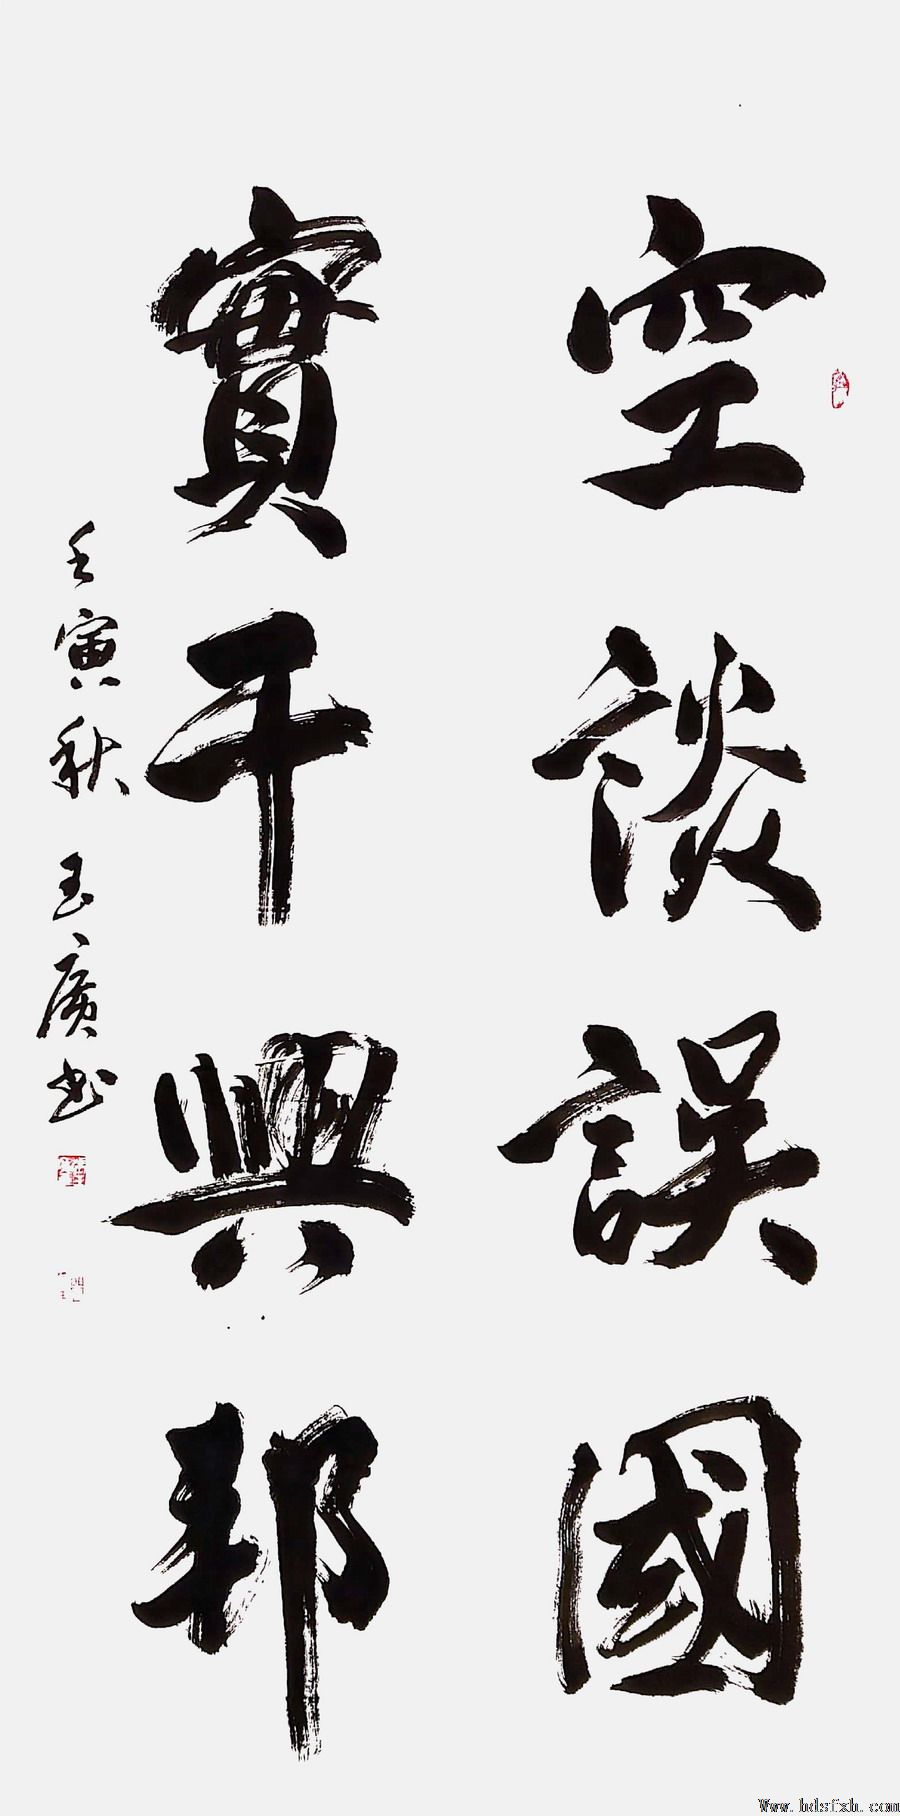 空談誤國
實干興邦
壬寅秋 玉廣书
Www.hdsfxh.com